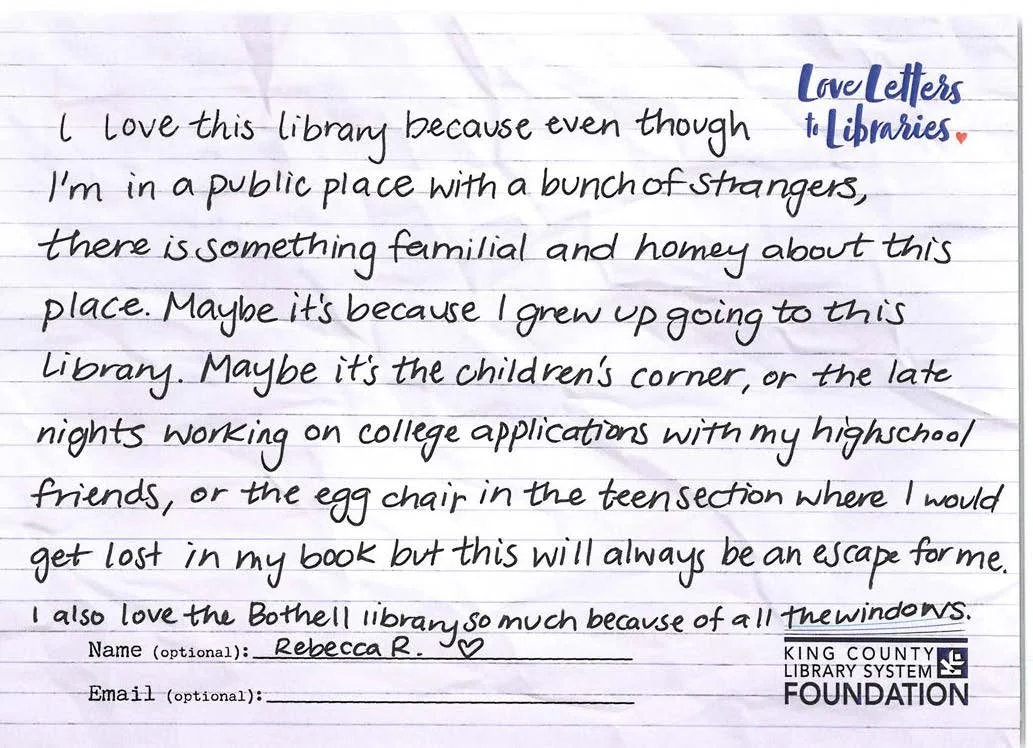 Love Letters
to Libraries
I love this library because even though
I'm in a public place with a bunch of strangers,
there is something familial and homey about this
place. Maybe it's because I grew up going to this
Library. Maybe it's the children's corner, or the late
nights working on college applications with my highschool
friends, or the egg chair in the teen section where I would
get lost in my book but this will always be an escape for me.
I also love the Bothell library so much because of all the windows.
Name (optional): Rebecca R. ♡
Email (optional):
KING COUNTY
LIBRARY SYSTEM
FOUNDATION